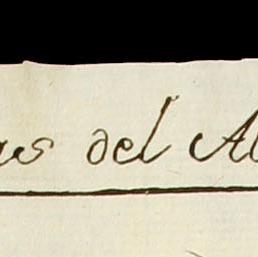 as del Al